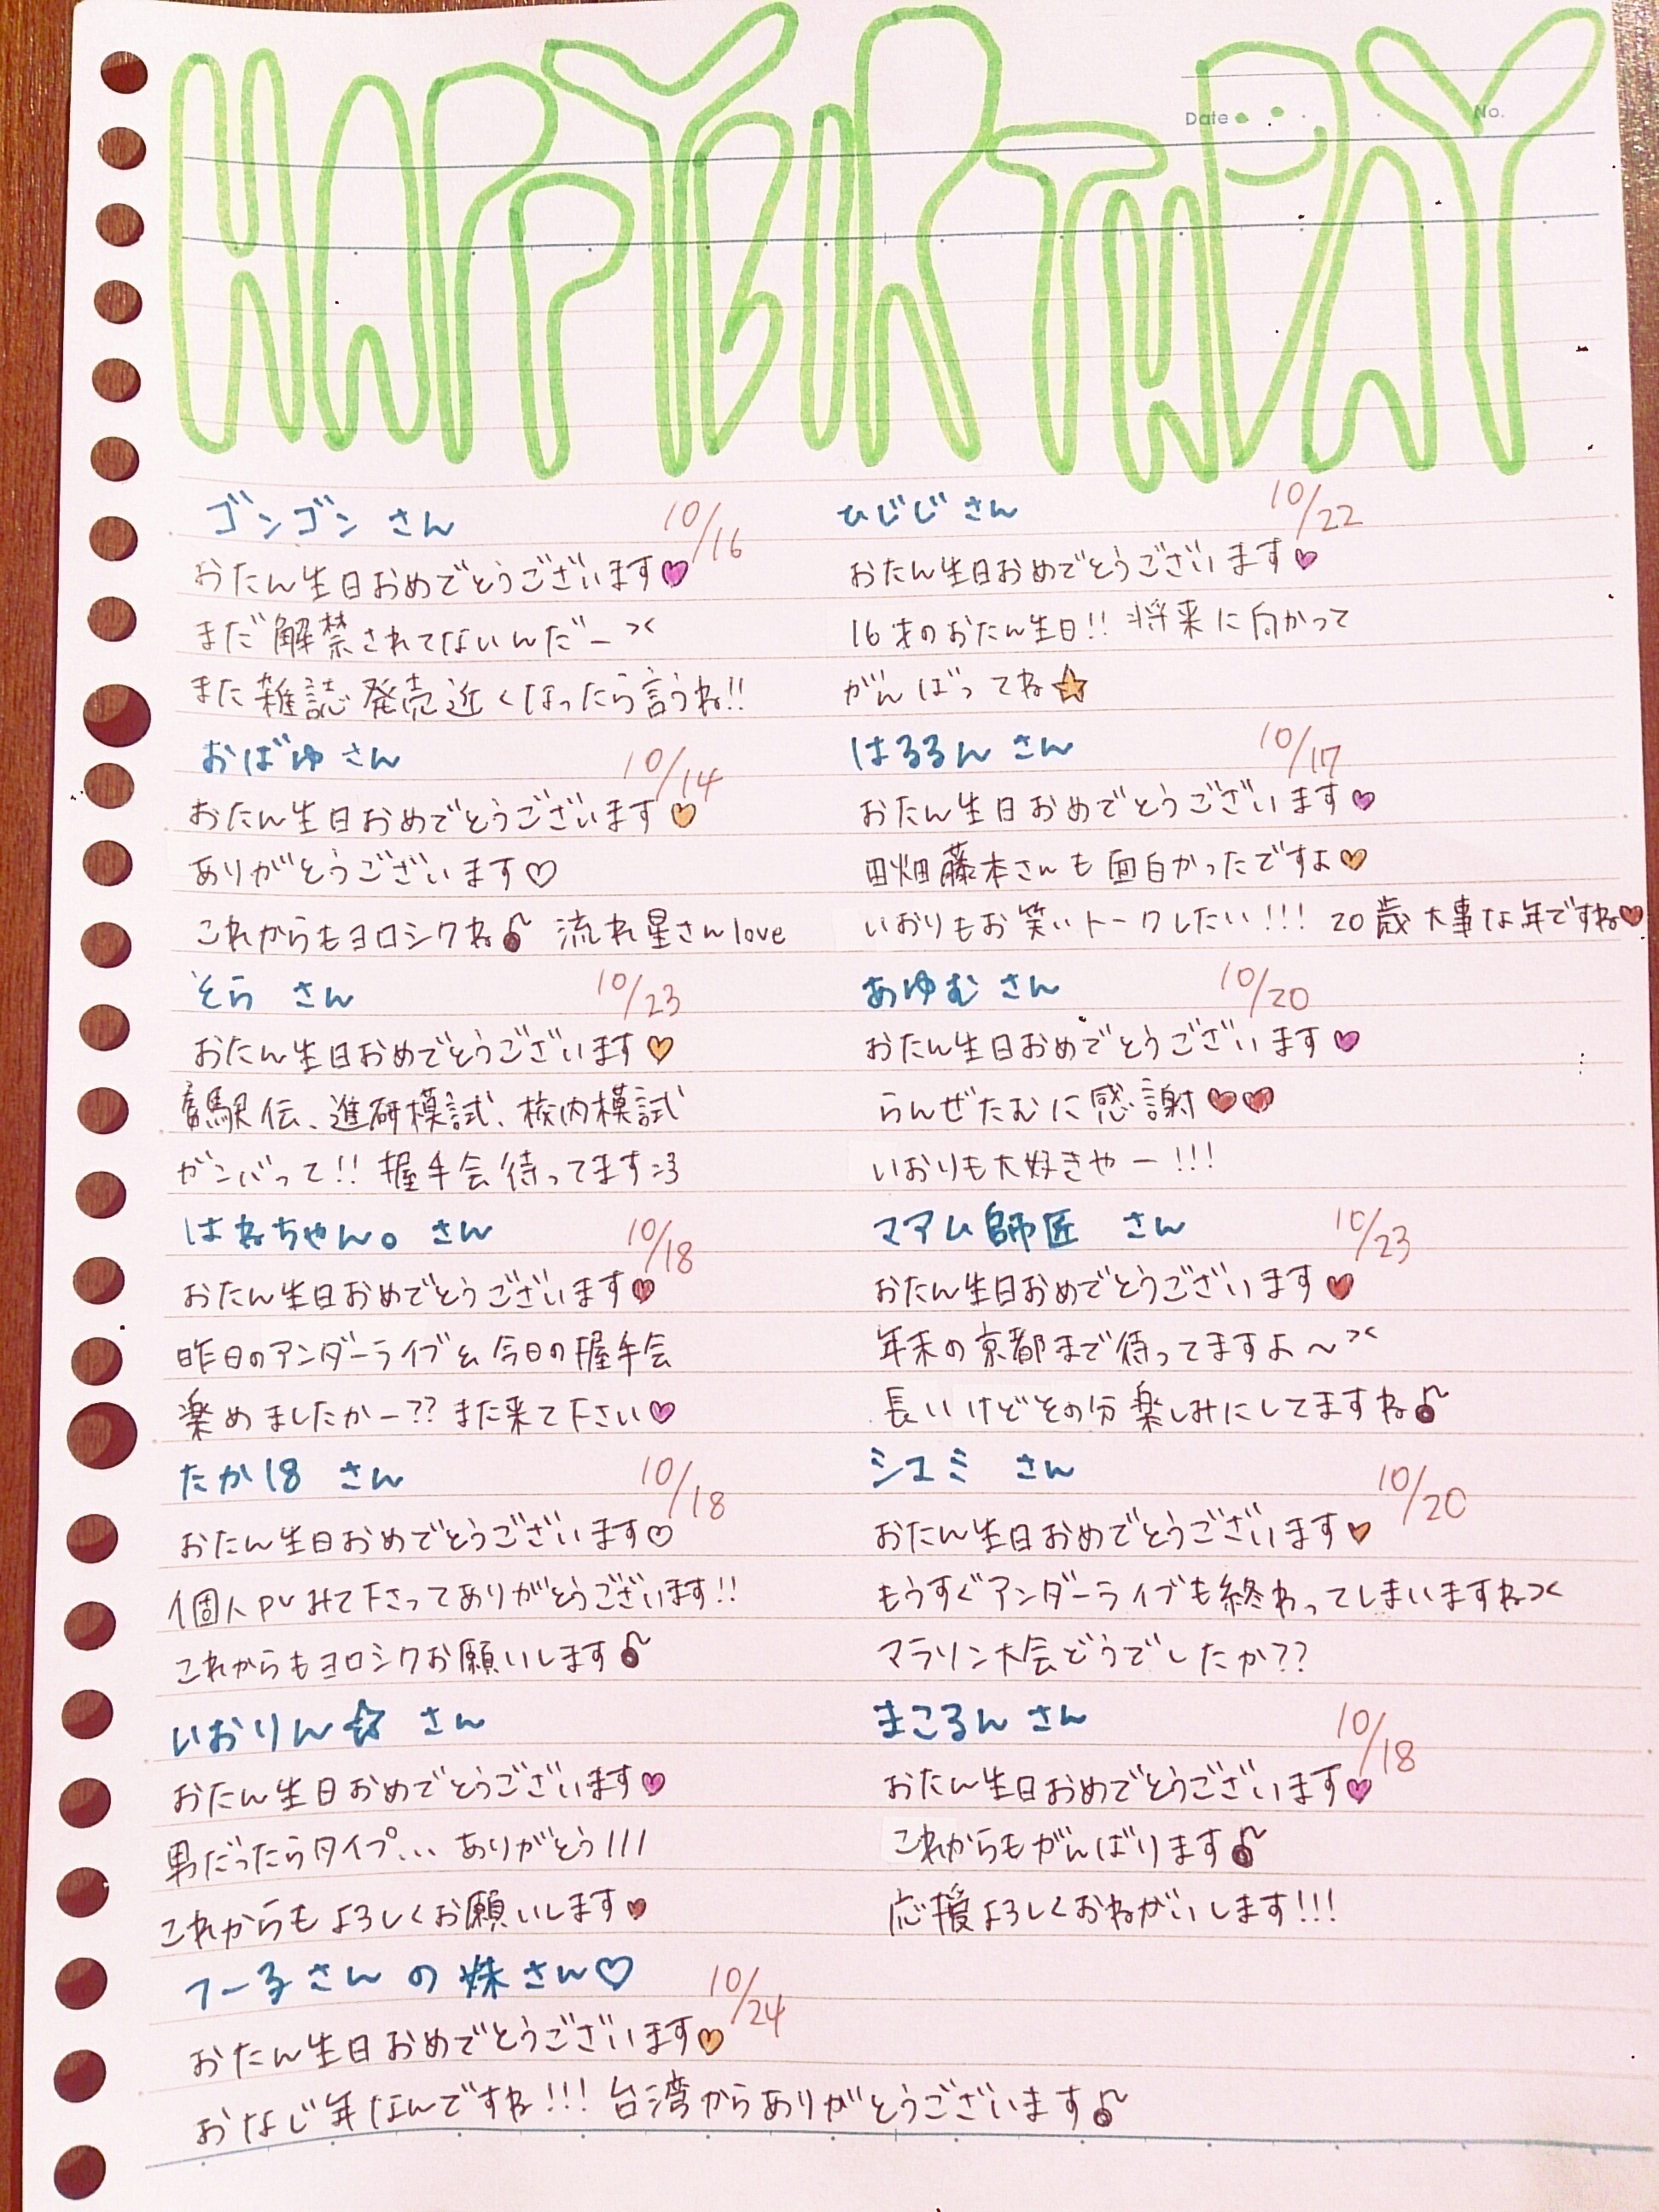 HAPPY BIRTHDAY
Date . . No.
ゴンゴン さん 10/16
おたん生日おめでとうございます♥
まだ解禁されてないんだー><
また雑誌発売近くなったら言うね!!
おばゆさん 10/14
おたん生日おめでとうございます♥
ありがとうございます♡
これからもヨロシクね♪ 流れ星さんlove
そら さん 10/23
おたん生日おめでとうございます♥
駅伝、進研模試、校内模試
ガンバって!! 握手会待ってます:3
はねちゃん。さん 10/18
おたん生日おめでとうございます♥
昨日のアンダーライブ&今日の握手会
楽めましたかー?? また来て下さい♥
たか18 さん 10/18
おたん生日おめでとうございます♡
個人PVみて下さってありがとうございます!!
これからもヨロシクお願いします♪
いおりん☆ さん
おたん生日おめでとうございます♥
男だったらタイプ... ありがとう///
これからもよろしくお願いします♥
フー子さんの妹さん♡ 10/24
おたん生日おめでとうございます♥
おなじ年なんですね!!! 台湾からありがとうございます♪
ひじじさん 10/22
おたん生日おめでとうございます♥
16才のおたん生日!! 将来に向かって
がんばってね☆
はるるんさん 10/17
おたん生日おめでとうございます♥
田畑藤本さんも面白かったですよ♥
いおりもお笑いトークしたい!!! 20歳大事な年ですね♥
あゆむさん 10/20
おたん生日おめでとうございます♥
らんぜたむに感謝♥♥
いおりも大好きやー!!!
マアム師匠 さん 10/23
おたん生日おめでとうございます♥
年末の京都まで待ってますよ〜><
長いけどその分楽しみにしてますね♪
シユミ さん 10/20
おたん生日おめでとうございます♥
もうすぐアンダーライブも終わってしまいますね><
マラソン大会どうでしたか??
まころんさん 10/18
おたん生日おめでとうございます♥
これからもがんばります♪
応援よろしくおねがいします!!!